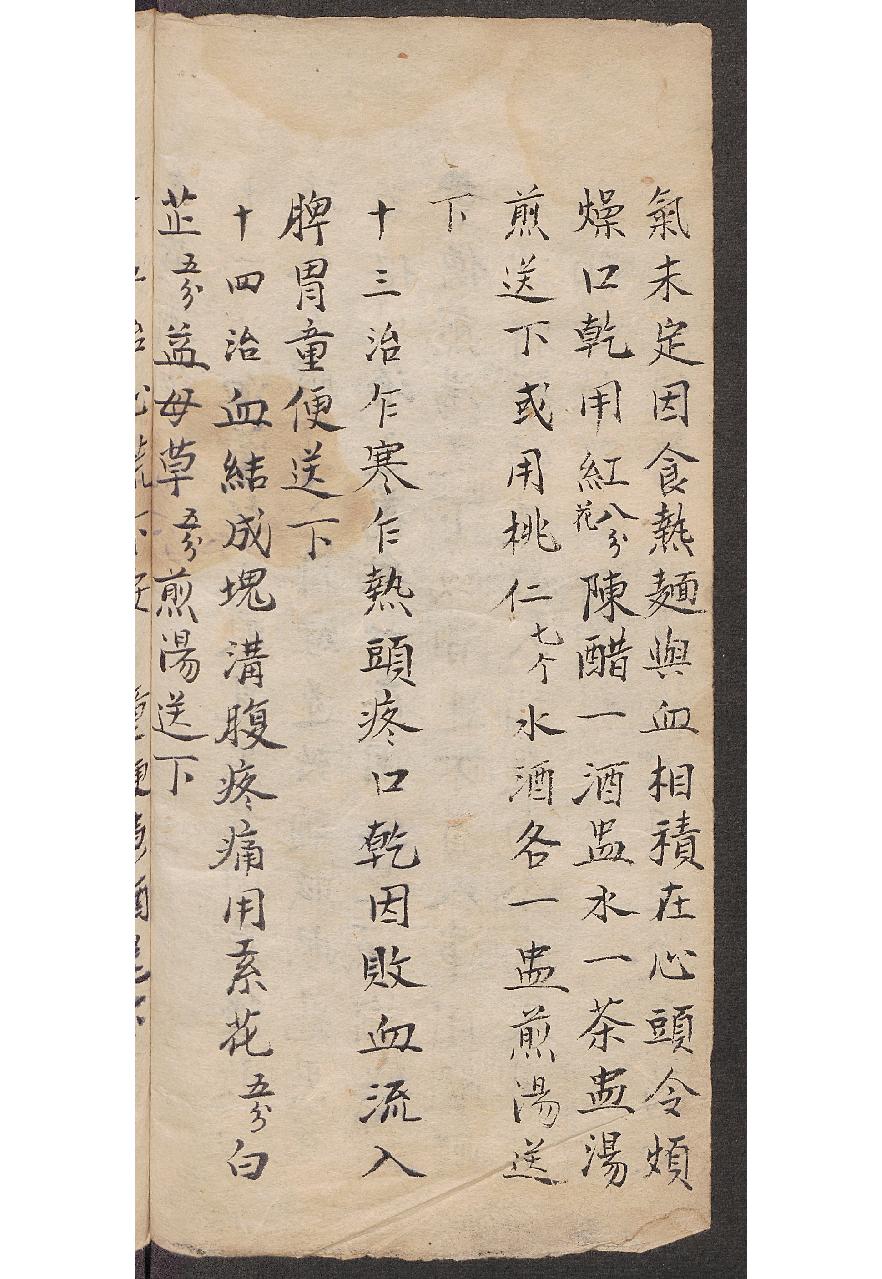 氣未定因食熱麵與血相積在心頭令煩
燥口乾用紅花八分陳醋一酒盅水一茶盅湯
煎送下或用桃仁七个水酒各一盅煎湯送
下
十三治乍寒乍熱頭疼口乾因敗血流入
脾胃童便送下
十四治血結成塊溝腹疼痛用索花五分白
芷五分益母草五分煎湯送下